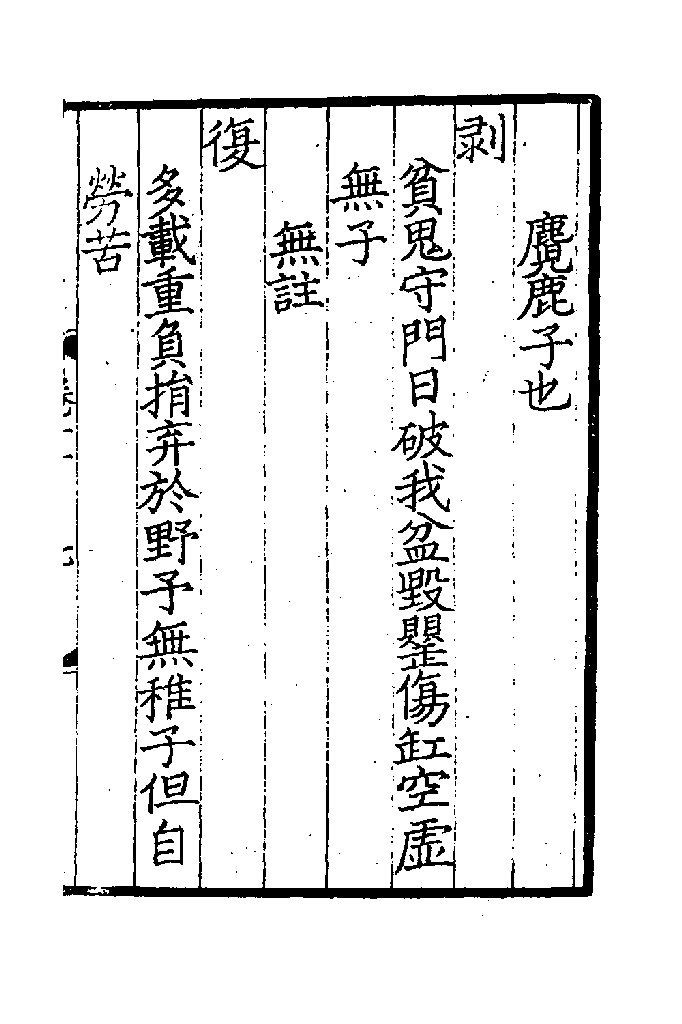 麑鹿子也
剥
貧鬼守門日破我盆毀罌傷缸空虛
無子
無註
復
多載重負捐弃於野予無稚子但自
勞苦